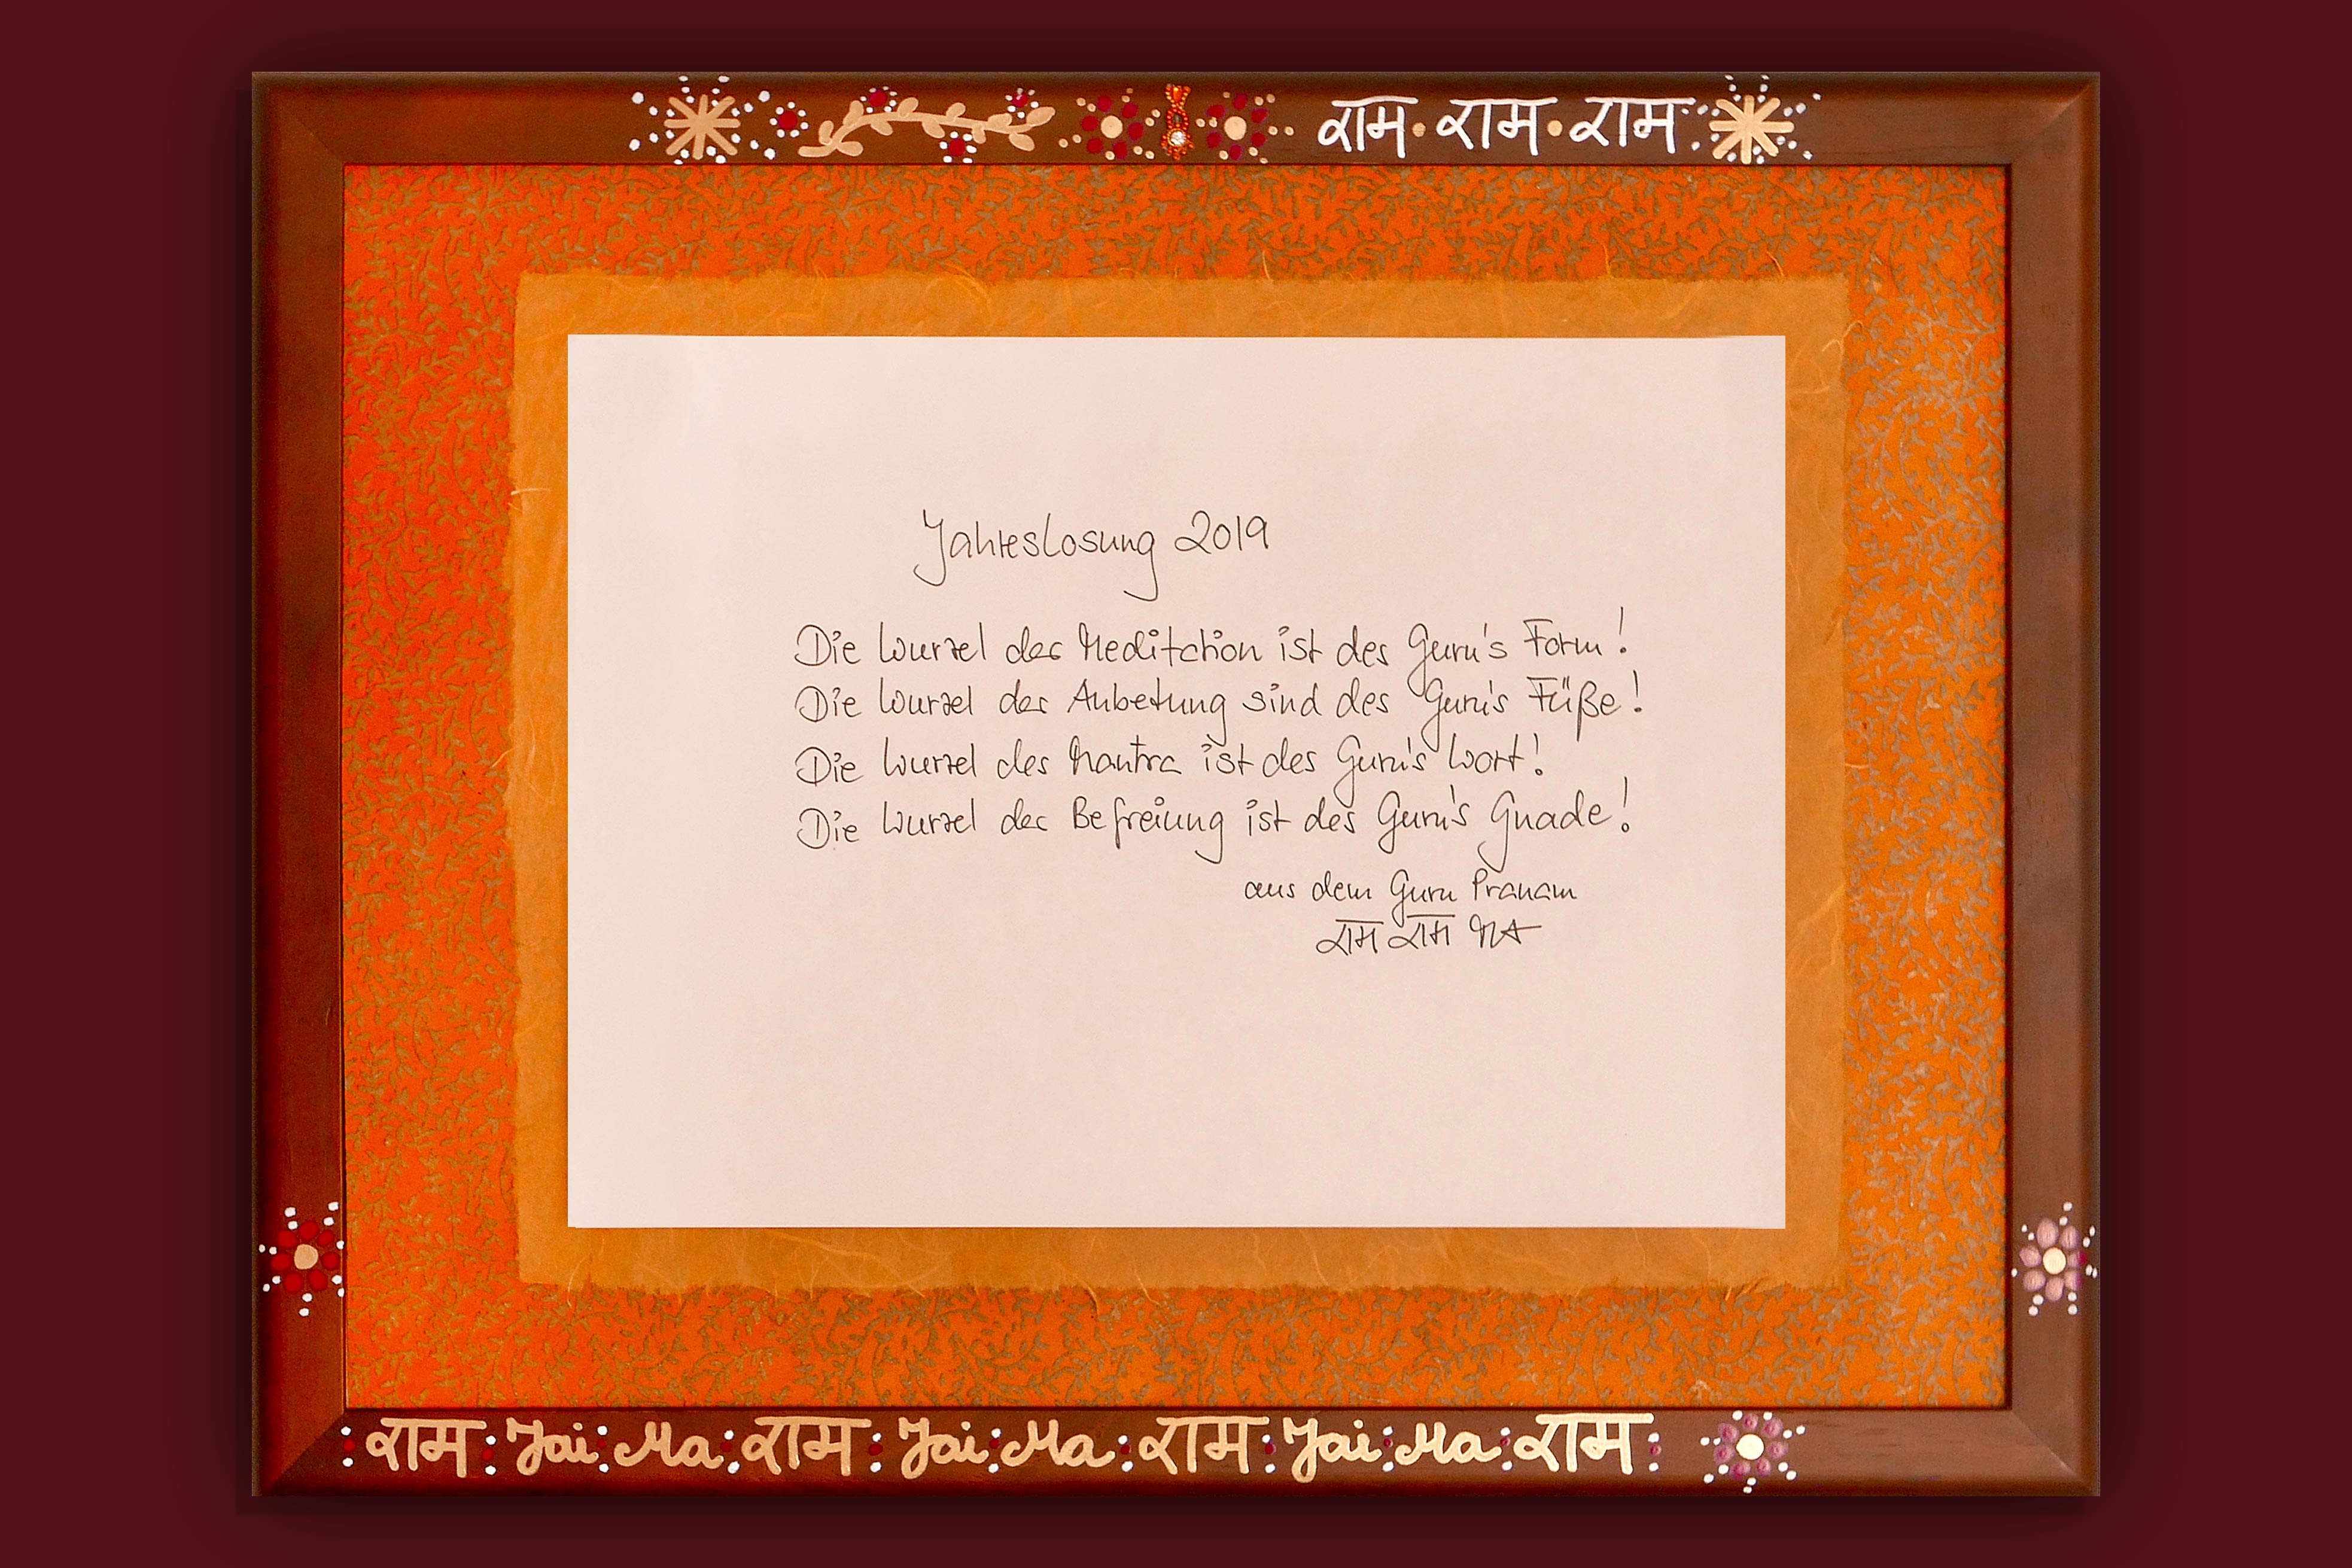 राम · राम · राम
Jahreslosung 2019
Die Wurzel der Meditation ist des Guru's Form!
Die Wurzel der Anbetung sind des Guru's Füße!
Die Wurzel des Mantra ist des Guru's Wort!
Die Wurzel der Befreiung ist des Guru's Gnade!
aus dem Guru Pranam
राम राम
राम : Jai : Ma : राम : Jai : Ma : राम : Jai : Ma : राम :